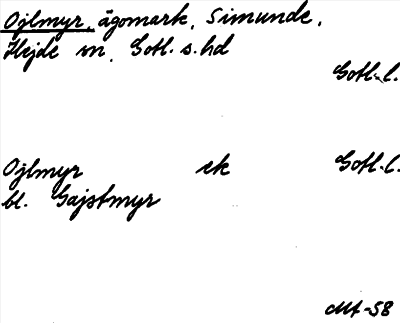 Ojlmyr, ägomark, Simunde,
Hejde sn, Gotl. s. hd
Gotl. l.
Ojlmyr ek Gotl. l.
bl. Gajstmyr
-58